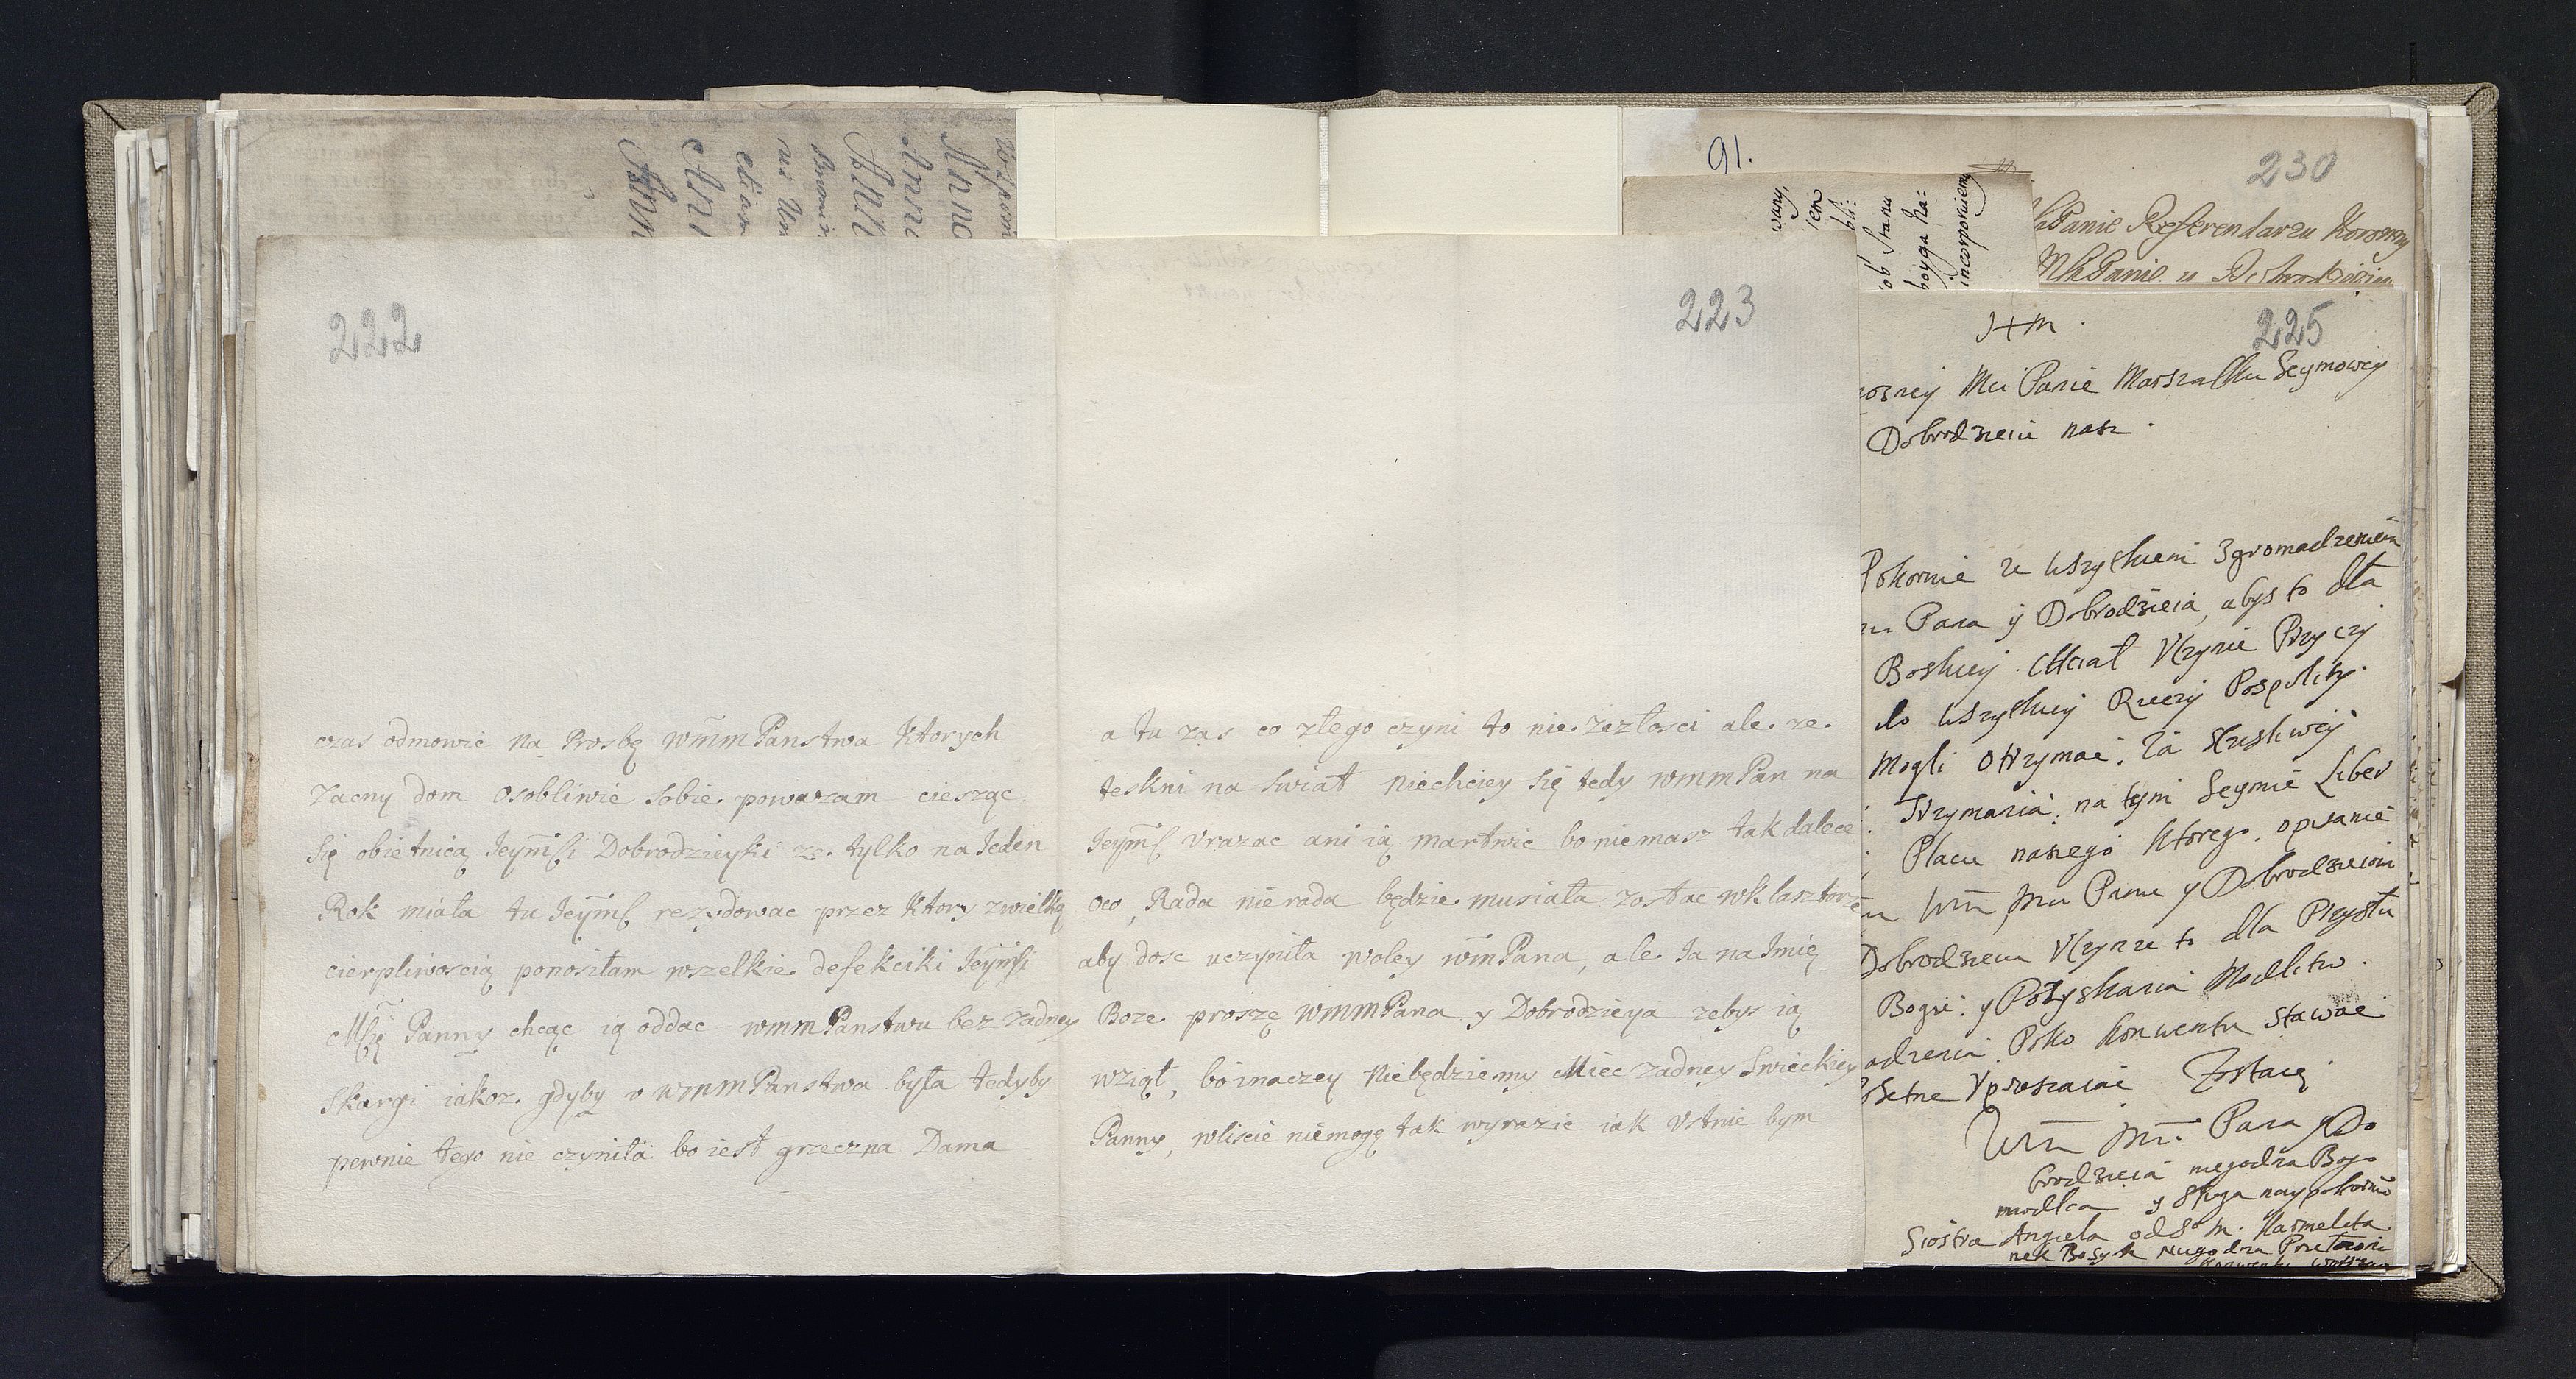 222
czas odmowić na Prosbę wmm Panstwa Ktorych
Zacny dom osobliwie sobie powazam ciesząc
się obietnicą Jeymści Dobrodzieyki ze tylko na Jeden
Rok miała tu Jeymść rezydowac przez Ktory zwielką
cierpliwoscią ponosiłam wszelkie defekciki Jeymści
Panny chcąc ią oddac wmm Panstwu bez zadney
skargi iakoz gdyby v wmm Panstwa była tedyby
pewnie tego nie czyniła bo iest grzeczna Dama
223
a tu zas co złego czyni to nie zezłosci ale ze
teskni na swiat niechciey się tedy wmm Pan na
Jeymść vrazac ani ią martwic bo niemasz tak dalece
oco, Rada nie rada będzie musiała zostac wklasztorze
aby dosc uczyniła woley wm Pana, ale Ja na Imię
Boze proszę wmm Pana y Dobrodzieya zebys ią
wziął, bo inaczey niebędziemy Miec zadney Swieckiey
Panny, wliscie niemogę tak wyrazic iak Vstnie bym
91.
wany,
iem
bli:
ob Stanu
boyga Na:
incorporuiemy
230
Panie Referendarzu Koronny
Panie u
J+m.
225
Mci Panie Marszałku Seymowey
Dobrodzieiu nasz.
Pokornie ze wszytkiem Zgromadzeniem
Pana y Dobrodzieia, abys to dla
Boskiey Chciał Vczynic Przyczy
do wszytkiey Rzeczy Pospolity
Mogli otrzymac. Za
na tym Seymie Liber
Placu naszego Ktorego opisanie
Wm Mu Panu y Dobrodzieiowi
Dobrodzieiu Vczynze to dla Przysłu
y Pozyskania Modlitw.
Konwentu stawac
Vpraszaiac Zostaię
Wm Mm. Pana y Do
brodzieia niegodna Bogo
modlca y Sługa naypokorni
Siostra Angiela od S° m. Karmelita
nek Bosych Niegodna